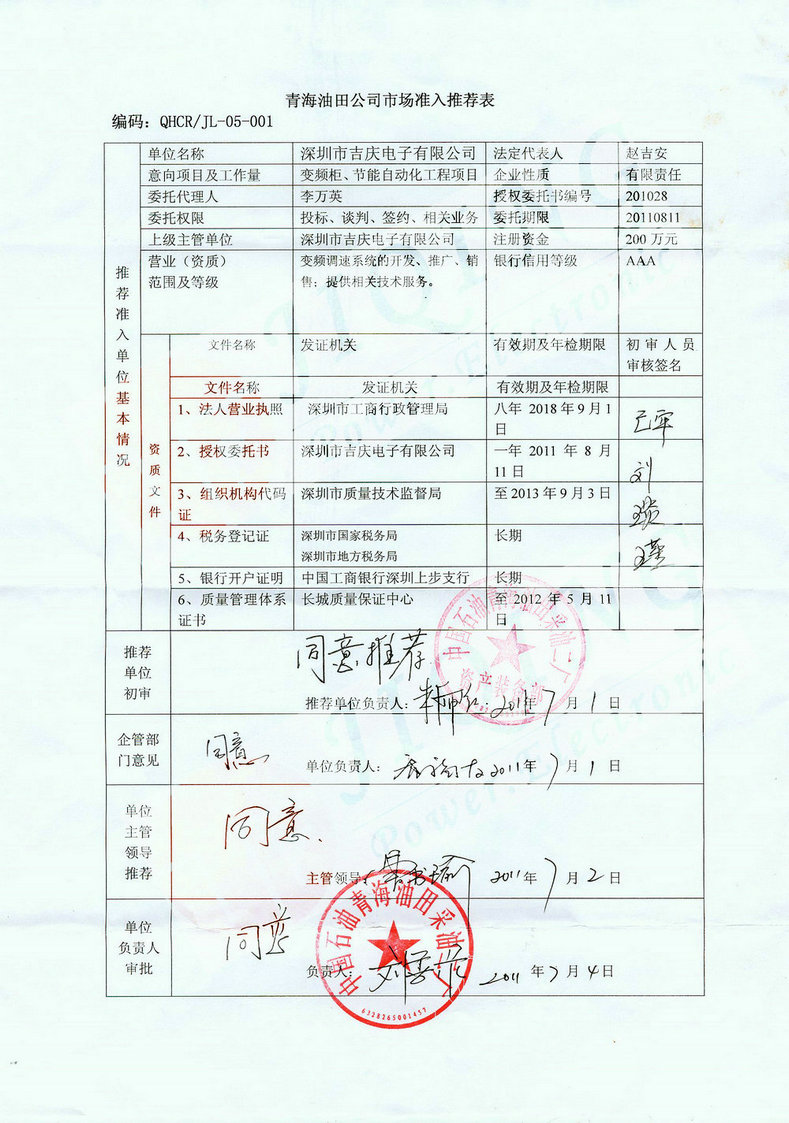 青海油田公司市场准入推荐表
编码：QHCR/JL-05-001
推荐准入单位基本情况
单位名称 深圳市吉庆电子有限公司 法定代表人 赵吉安
意向项目及工作量 变频柜、节能自动化工程项目 企业性质 有限责任
委托代理人 李万英 授权委托书编号 201028
委托权限 投标、谈判、签约、相关业务 委托期限 20110811
上级主管单位 深圳市吉庆电子有限公司 注册资金 200 万元
营业（资质） 变频调速系统的开发、推广、销 银行信用等级 AAA
范围及等级 售；提供相关技术服务。
资质文件
文件名称 发证机关 有效期及年检期限 初审人员
审核签名
文件名称 发证机关 有效期及年检期限
1、法人营业执照 深圳市工商行政管理局 八年 2018 年 9 月 1
日
2、授权委托书 深圳市吉庆电子有限公司 一年 2011 年 8 月
11 日
刘
3、组织机构代码 深圳市质量技术监督局 至 2013 年 9 月 3 日
证
4、税务登记证 深圳市国家税务局 长期
深圳市地方税务局
5、银行开户证明 中国工商银行深圳上步支行 长期
6、质量管理体系 长城质量保证中心 至 2012 年 5 月 11
证书 日
中国石油青海油田采油二厂
推荐
单位
初审
同意推荐
推荐单位负责人： 2011年 7 月 1 日
企管部
门意见
同意
单位负责人： 2011年 7 月 1 日
单位
主管
领导
推荐
同意.
主管领导： 2011年 7 月 2 日
单位
负责人
审批
同意
负责人： 2011 年 7 月 4 日
中国石油青海油田采油二厂
6328265001457
Power.Electronic
Power.Electronic